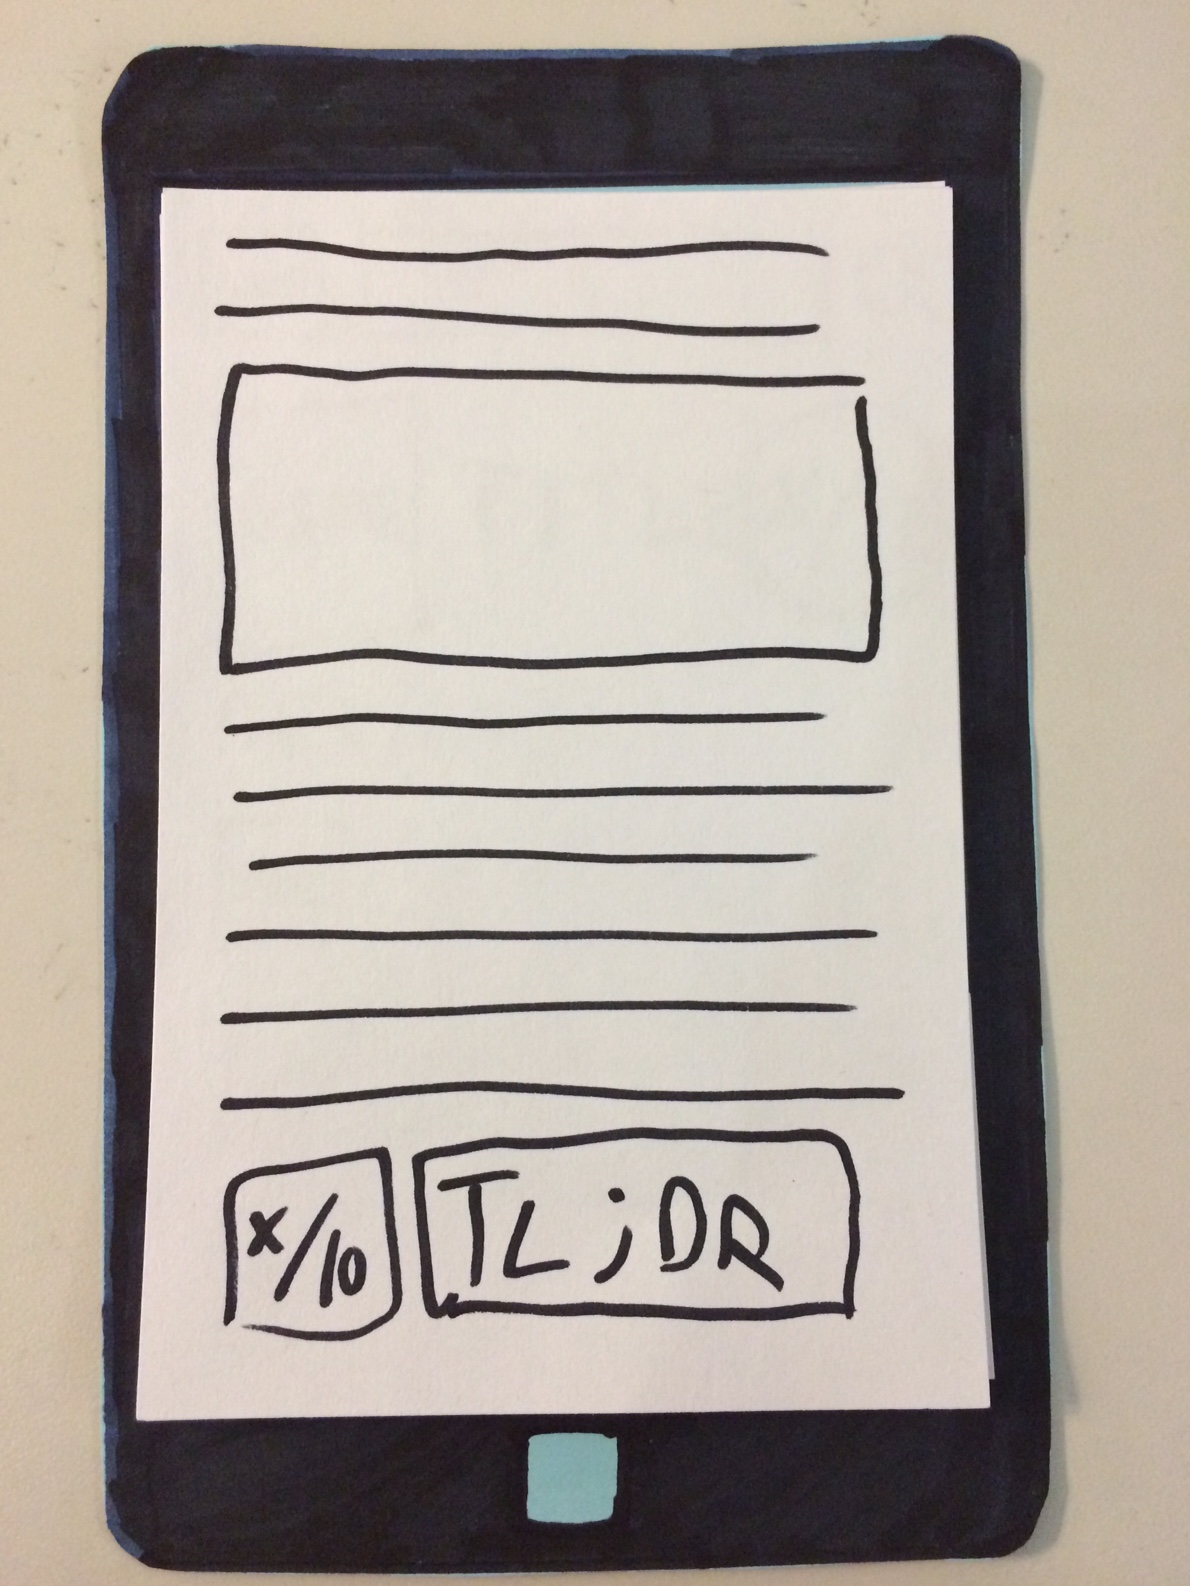 x/10
TL;DR